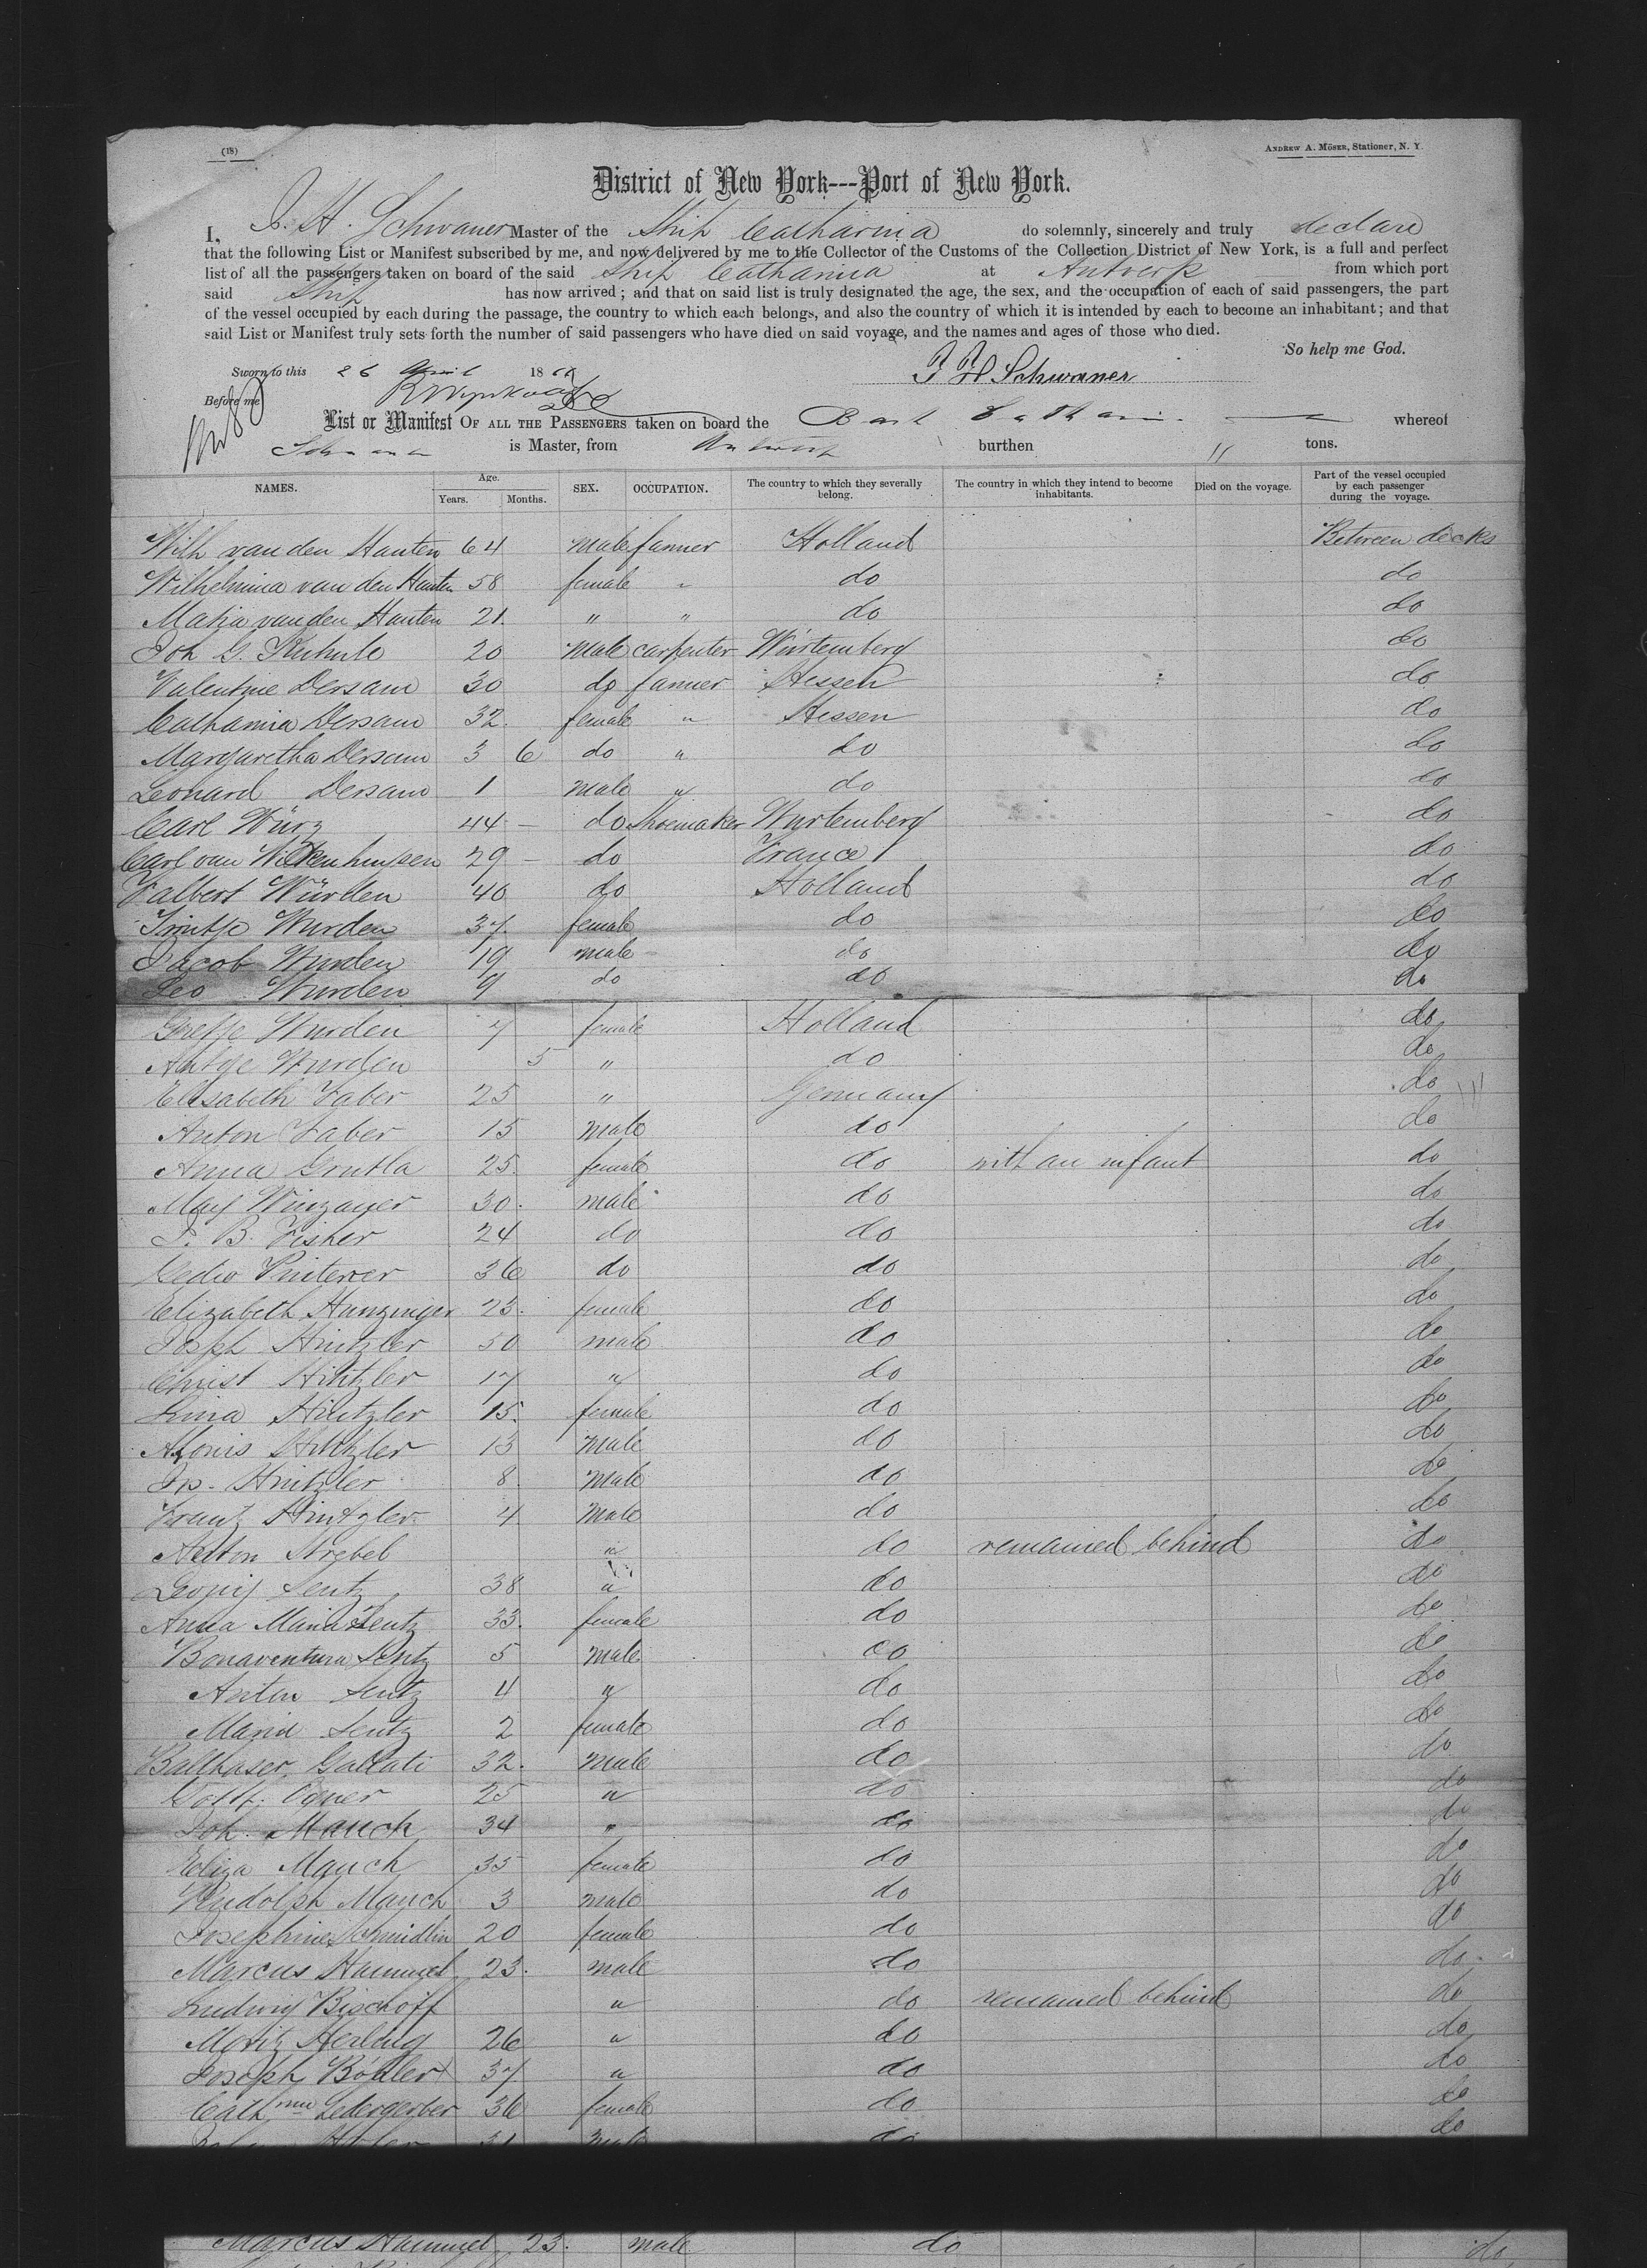 (18)
ANDREW A. MÖSER, Stationer, N. Y.
District of New York---Port of New York.
I, J. H. Schwaner Master of the Ship Catharina do solemnly, sincerely and truly declare
that the following List or Manifest subscribed by me, and now delivered by me to the Collector of the Customs of the Collection District of New York, is a full and perfect
list of all the passengers taken on board of the said Ship Catharina at Antverp from which port
said Ship has now arrived; and that on said list is truly designated the age, the sex, and the occupation of each of said passengers, the part
of the vessel occupied by each during the passage, the country to which each belongs, and also the country of which it is intended by each to become an inhabitant; and that
said List or Manifest truly sets forth the number of said passengers who have died on said voyage, and the names and ages of those who died.
So help me God.
Sworn to this 26 April 18
J H Schwaner
Before me
List or Manifest OF ALL THE PASSENGERS taken on board the Bark Catharina whereof
is Master, from Antwerp burthen " tons.
NAMES. Age. Years. Months. SEX. OCCUPATION. The country to which they severally belong. The country in which they intend to become inhabitants. Died on the voyage. Part of the vessel occupied by each passenger during the voyage.
Wilh van den Hauten 64 male farmer Holland Between decks
Wilhelmina van den Hauten 58 female " do do
Maria van den Hauten 21 " " do do
Joh G. Kuhnle 20 Male carpenter Würtemberg do
Valentine Dersam 30 do farmer Hessen do
Catharina Dersam 32 female " Hessen do
Margaretha Dersam 3 6 do " do do
Leonard Dersam 1 male " do do
Carl Würz 44 do Shoemaker Wurtemberg do
Carl van 29 do France do
Valbert Würden 40 do Holland do
Trintje Wurden 37 female do do
Jacob Wurden 19 male do do
Leo Wurden 9 do do do
Gretje Wurden 7 female Holland do
Antge Wurden 5 " do do
Elisabeth Faber 25 " Germany do
Anton Faber 15 Male do do
Anna Grutla 25 female do with an infant do
May Winzauer 30 male do do
J. B. Fisher 24 do do do
36 do do do
Elizabeth Hunzinger 23 female do do
Joseph Hintzler 50 male do do
Christ Hintzler 17 " do do
Lina Hintzler 15 female do do
Alonis Hintzler 13 Male do do
Jos. Hintzler 8 Male do do
Frantz Hintzler 4 Male do do
Anton Strebel " do remained behind do
Sentz 38 " do do
Anna Maria Sentz 33 female do do
Bonaventura Sentz 5 Male do do
Anton Sentz 4 " do do
Maria Sentz 2 female do do
Balthaser Gallati 32 Male do do
Gottf. 25 " do do
Joh. Mauch 34 " do do
Eliza Mauch 35 female do do
Rudolph Mauch 3 male do do
Josephine Schmidlin 20 female do do
Marcus Hammel 23 male do do
Ludwig Bischoff " do remained behind do
Moritz 26 " do do
Joseph Böhler 37 " do do
Cathrina Ledergerber 36 female do do
31 Male do do
Marcus Hammel 23. male do do